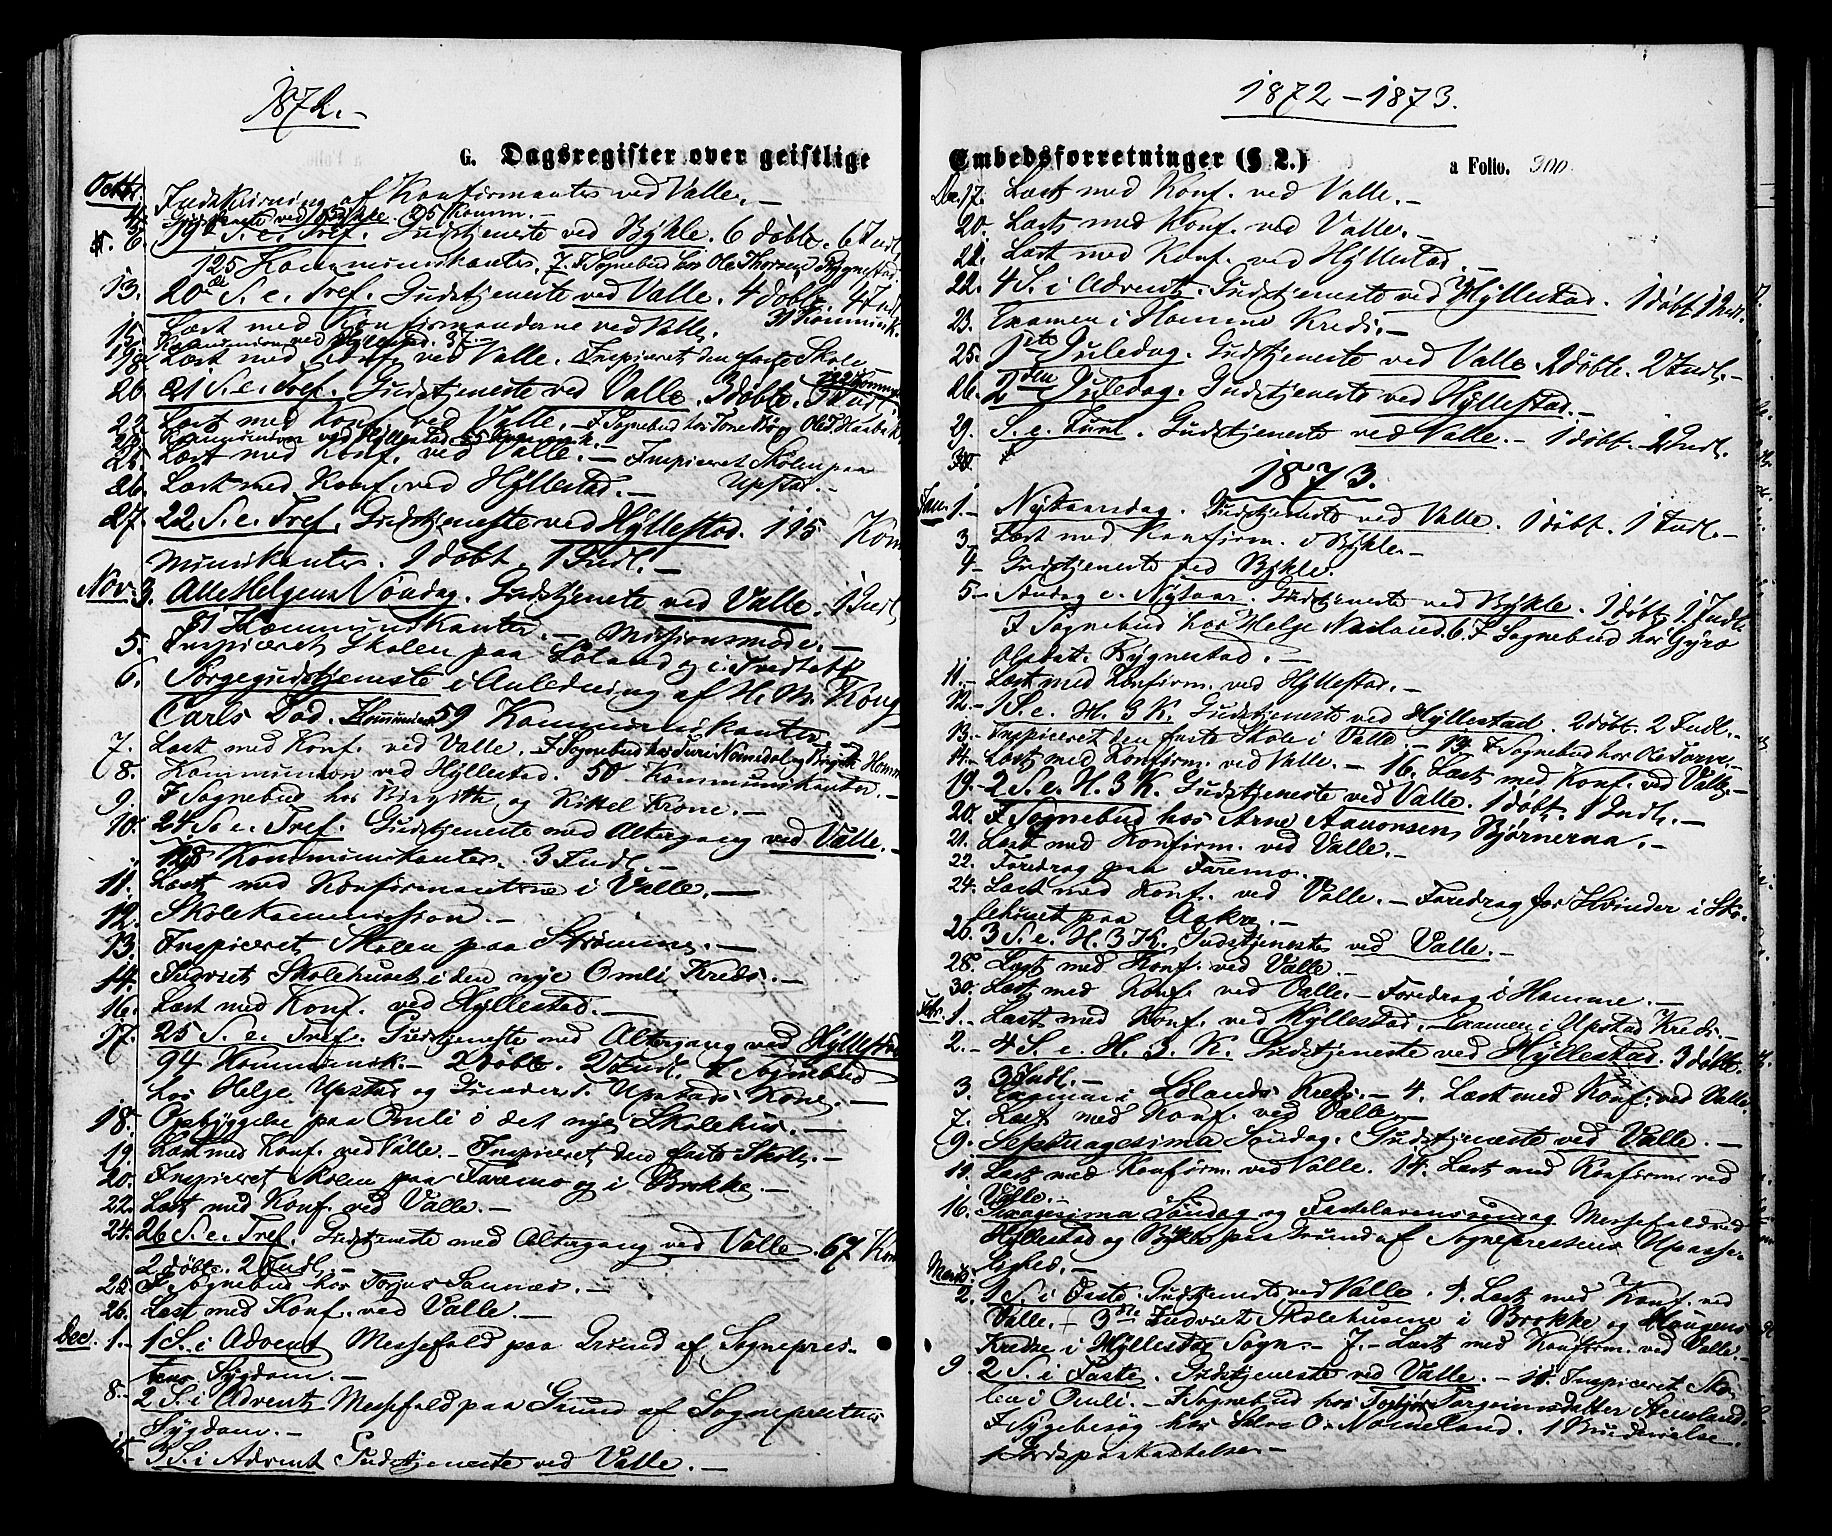 1872.-
G. Dagsregister over geistlige
Octbr. Indskrivning af Konfirmanter ved Valle.-
4. Gudstjeneste ved Bykle. 25 Komm.-
6. 19de S. e. Tref. Gudstjeneste ved Bykle. 6 døbte. 6 Indl.
125 Kommunikanter. 7. I Sognebud hos Ole Thorsen Rygnestad.
13. 20de S. e. Tref. Gudstjeneste ved Valle. 4 døbte. 4 Indl.
31 Kommunik.
15. Læst med Konfirmanderne ved Valle.
Kommunion ved Hyllestad. 37.-
18. Læst med Konf. ved Valle. Inspiceret den faste Skole
20. 21 S. e. Tref. Gudstjeneste ved Valle. 3 døbte. 3 Indl.
22. Læst med Konf. ved Valle. - I Sognebud hos Tone
24. Kommunion ved Hyllestad
25. Læst med Konf. ved Valle. - Inspiceret Skolen paa
Upstad.-
26. Læst med Konf. ved Hyllestad.-
27. 22. S. e. Tref. Gudstjeneste ved Hyllestad. 115 Kom
munikanter. 1 døbt. 1 Indl.-
Nov. 3. Alle Helgens Søndag. Gudstjeneste ved Valle. 1 Indl.
81 Kommunikanter. - Missionsmøde.-
5. Inspiceret Skolen paa Løland og i Tvedtebk
6. Sørgegudstjeneste i Anledning af H. M. Kong
Carls Død. 59 Kommunikanter.-
7. Læst med Konf. ved Valle. I Sognebud hos Nomedal og
8. Kommunion ved Hyllestad. 50 Kommunikanter.-
9. I Sognebud hos Birgitte og Kittel Krone.-
10. 24 S. e. Tref. Gudstjeneste med Altergang ved Valle.-
128 Kommunikanter. 3 Indl.-
11. Læst med Konfirmanterne i Valle.-
12. Skolekommission.-
13. Inspiceret Skolen paa Strømme.-
14. Indviet Skolehuset i den nye Omli Kreds.-
16. Læst med Konf. ved Hyllestad.-
17. 25 S. e. Tref. Gudstjeneste med Altergang ved Hyllestad
94 Kommunik.- 2 døbte. 2 Indl. I Sognebud
hos Helge Upstad og Gunder T. Upstads Kone.-
18. Opbyggelse paa Omli i det nye Skolehus.-
19. Læst med Konf. ved Valle. - Inspiceret den faste Skole.-
20. Inspiceret Skolen paa Faremo og i Brokke.-
22. Læst med Konf. ved Valle.-
24. 26 S. e. Tref. Gudstjeneste med Altergang ved Valle. 67 Kom
2 døbte. 2 Indl.-
25. I Sognebud hos Torjus Sannæs.-
26. Læst med Konf. ved Valle.-
Dec. 1. 1 S. i Advent Messefald paa Grund af Sognepres-
tens Sygdom.-
8. 2 S. i Advent Messefald paa Grund af Sogneprestens
Sygdom.-
15. 3 S. i Advent Gudstjeneste ved Valle.-
1872-1873.
Embedsforretninger (§ 2.) a Folio. 300.
Dec. 17. Læst med Konf. ved Valle.-
20. Læst med Konf. ved Valle.-
21. Læst med Konf. ved Hyllestad.-
22. 4 S. i Advent. Gudstjeneste ved Hyllestad. 1 døbt. 1 Indl.
23. Examen i Homme Kreds.-
25. 1ste Juledag. Gudstjeneste ved Valle. 2 døbte. 2 Indl.-
26. 2den Juledag. Gudstjeneste ved Hyllestad.-
29. S. e. Juul. Gudstjeneste ved Valle.- 1 døbt. 2 Indl.
1873.
Jan. 1.- Nytaarsdag. Gudstjeneste ved Valle. 1 døbt. 1 Indl.-
3.- Læst med Konfirm. i Bykle.-
4- Gudstjeneste ved Bykle.
5.- Søndag e. Nytaar. Gudstjeneste ved Bykle. 1 døbt. 1 Indl.
I Sognebud hos Helge 6. I Sognebud hos Gyro
Olsdat. Rygnestad.-
11.- Læst med Konfirm. ved Hyllestad.-
12.- 1 S. e. H. 3 K. Gudstjeneste ved Hyllestad. 2 døbt. 2 Indl.-
13.- Inspiceret den faste Skole i Valle.- 13. I Sognebud hos Ole
14.- Læst med Konfirm. ved Valle.- 16. Læst med Konf. ved Valle.-
19.- 2 S. e. H. 3 K. Gudstjeneste ved Valle. 1 døbt. 1 Indl.-
20. I Sognebud hos Arne Aanonsen Bjørnerna.-
21. Læst med Konfirm. ved Valle.-
22. Foredrag paa Faremo.-
24. Læst med Konf. ved Valle.- Foredrag for Kvinder i Sko-
lehuset paa Aakre.-
26. 3 S. e. H. 3 K. Gudstjeneste ved Valle.-
28. Læst med Konf. ved Valle.-
30. Læst med Konf. ved Valle.- Foredrag i Homme.-
Febr. 1.- Læst med Konf. ved Hyllestad. Examen i Upstad Kreds.-
2.- 4 S. e. H. 3. K. Gudstjeneste ved Hyllestad. 3 døbte.
3 Indl.-
3. Examen i Lølands Kreds.- 4. Læst med Konf. ved Valle
7. Læst med Konf. ved Valle.-
9. Septuagesima Søndag. Gudstjeneste ved Valle.-
11. Læst med Konfirm. ved Valle. 14. Læst med Konfirm. ved
Valle.-
16. Sexagesima Søndag og Fastelavenssøndag Messefald ved
Hyllestad og Bykle paa Grund af Sogneprestens Upasse-
lighed.-
Marts 2. 1 S. i Faste. Gudstjeneste ved Valle. 4. Læst med Konf. ved
Valle.- 3die Indviet Skolehusene i Brokke og Haugens
Kredse i Hyllestad Sogn.- 7.- Læst med Konfirm. ved Valle.-
9 2 S. i Faste. Gudstjeneste ved Valle.- 11. Inspiceret Sko-
len i Omli.- I Sognebud hos Torgrimsdatter
I Sygebesøg hos Salve O. Nomeland. 1 Brudevielse.
1 Jordpaakastelse.-